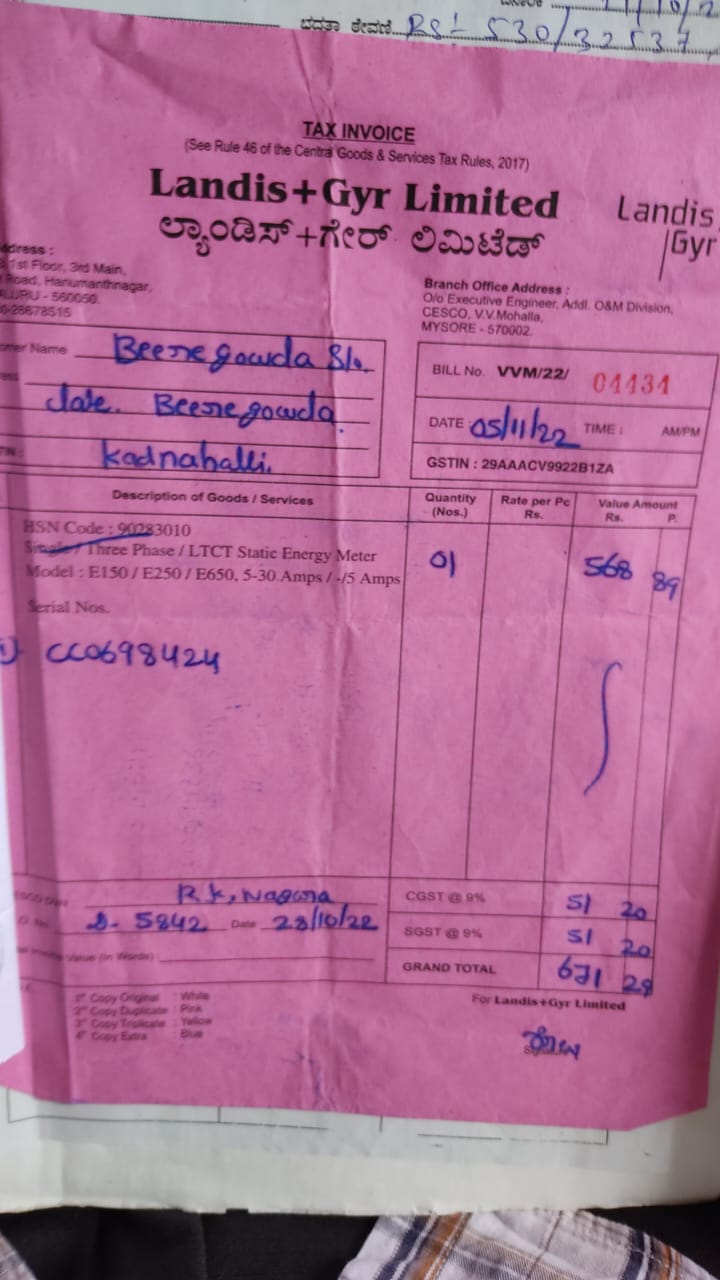 ಭದ್ರತಾ ಠೇವಣಿ RS:- 530/32537
TAX INVOICE
(See Rule 46 of the Central Goods & Services Tax Rules, 2017)
Landis+Gyr Limited
ಲ್ಯಾಂಡಿಸ್+ಗೇರ್ ಲಿಮಿಟೆಡ್
Landis
Gyr
ddress :
1st Floor, 3rd Main,
Road, Hanumanthnagar,
ALURU - 560050.
0-26678515
Branch Office Address :
O/o Executive Engineer, Addl. O&M Division,
CESCO, V.V.Mohalla,
MYSORE - 570002.
omer Name Beeregowda S/o.
late. Beeregowda.
Kadnahalli.
BILL No. VVM/22/ 04434
DATE : 05/11/22 TIME : AM/PM
GSTIN : 29AAACV9922B1ZA
Description of Goods / Services
Quantity (Nos.)
Rate per Pc Rs.
Value Amount Rs. P.
HSN Code : 90283010
Single / Three Phase / LTCT Static Energy Meter
Model : E150 / E250 / E650, 5-30 Amps / -/5 Amps
01 568 89
Serial Nos.
1) CC0698424
R.K. Nagara
D- 5842 Date 28/10/22
Value (in Words)
CGST @ 9% 51 20
SGST @ 9% 51 20
GRAND TOTAL 671 29
1st Copy Original : White
2nd Copy Duplicate : Pink
3rd Copy Triplicate : Yellow
4th Copy Extra : Blue
For Landis+Gyr Limited
Signature